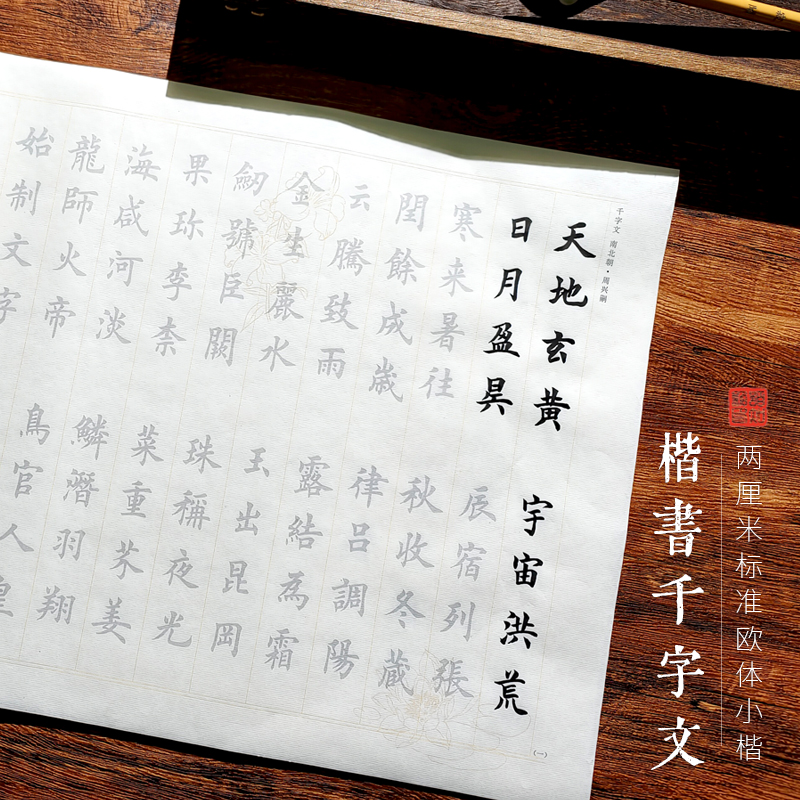 千字文 南北朝·周兴嗣
天地玄黃 宇宙洪荒
日月盈昃 辰宿列張
寒来暑往 秋收冬蔵
閏餘成歲 律吕調陽
云騰致雨 露結為霜
金生麗水 玉出昆岡
劒號臣闕 珠稱夜光
果珎李柰 菜重芥姜
海咸河淡 鱗潛羽翔
龍師火帝 鳥官人皇
始制文字
（一）
两厘米标准欧体小楷
楷書千字文